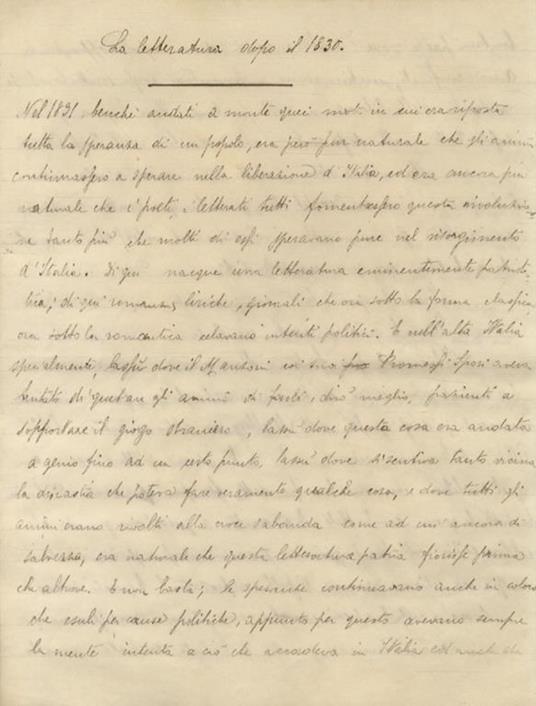 La letteratura dopo il 1830.
Nel 1831 benchè andati a monte quei moti in cui era riposta
tutta la speranza di un popolo, era però pur naturale che gli animi
continuassero a sperare nella liberazione d'Italia, ed era ancora più
naturale che i poeti, i letterati tutti fomentassero questa rivoluzio=
=ne tanto più che molti di essi speravano pure nel risorgimento
d'Italia. Di qui nacque una letteratura eminentemente patriot=
tica, di qui romanzi, liriche, giornali che ora sotto la forma classica
ora sotto la romantica celavano intenti politici. E nell'alta Italia
specialmente, lassù dove il Manzoni coi suoi Promessi Sposi aveva
tentato di quetare gli animi di farli, dirò meglio, pazienti a
sopportare il giogo straniero, lassù dove questa cosa era andata
a genio fino ad un certo punto, lassù dove si sentiva tanto vicina
la dinastia che poteva fare veramente qualche cosa, e dove tutti gli
animi erano rivolti alla croce sabauda come ad un'ancora di
salvezza, era naturale che questa letteratura patria fiorisse prima
che altrove. E non basta; le speranze continuavano anche in coloro
che esuli per cause politiche, appunto per questo avevano sempre
la mente intenta a ciò che accadeva in Italia ed anche